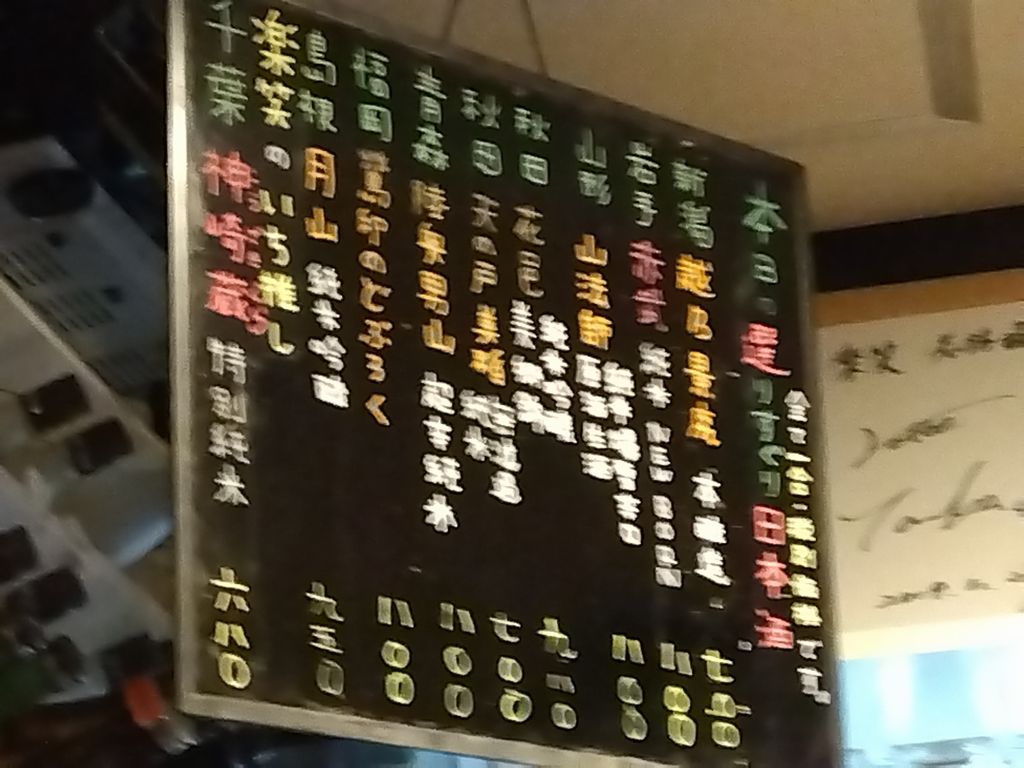 本日の選りすぐり日本酒
全て一合・税別価格です。
新潟 越乃景虎 本醸造 七
岩手 赤武 純米 NEWBORN 八〇〇
山形 山法師 八〇〇
秋田 花邑 純米 九
秋田 天の戸 美稲 純米 七〇〇
青森 陸奥男山 超辛純米 八〇〇
福岡 蔦印のどぶろく 八〇〇
島根 月山 純米吟醸 九五〇
楽笑のいち推し
千葉 神崎蔵 特別純米 六八〇